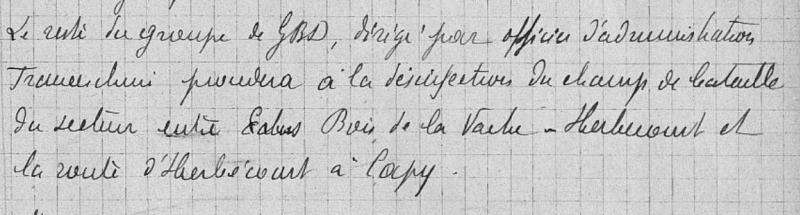 Le reste du groupe de GBD, dirigé par officier d'administration
Franceschini procédera à la désinfection du champ de bataille
du secteur entre Bois de la Vache - Herbécourt et
la route d'Herbécourt à Cappy.